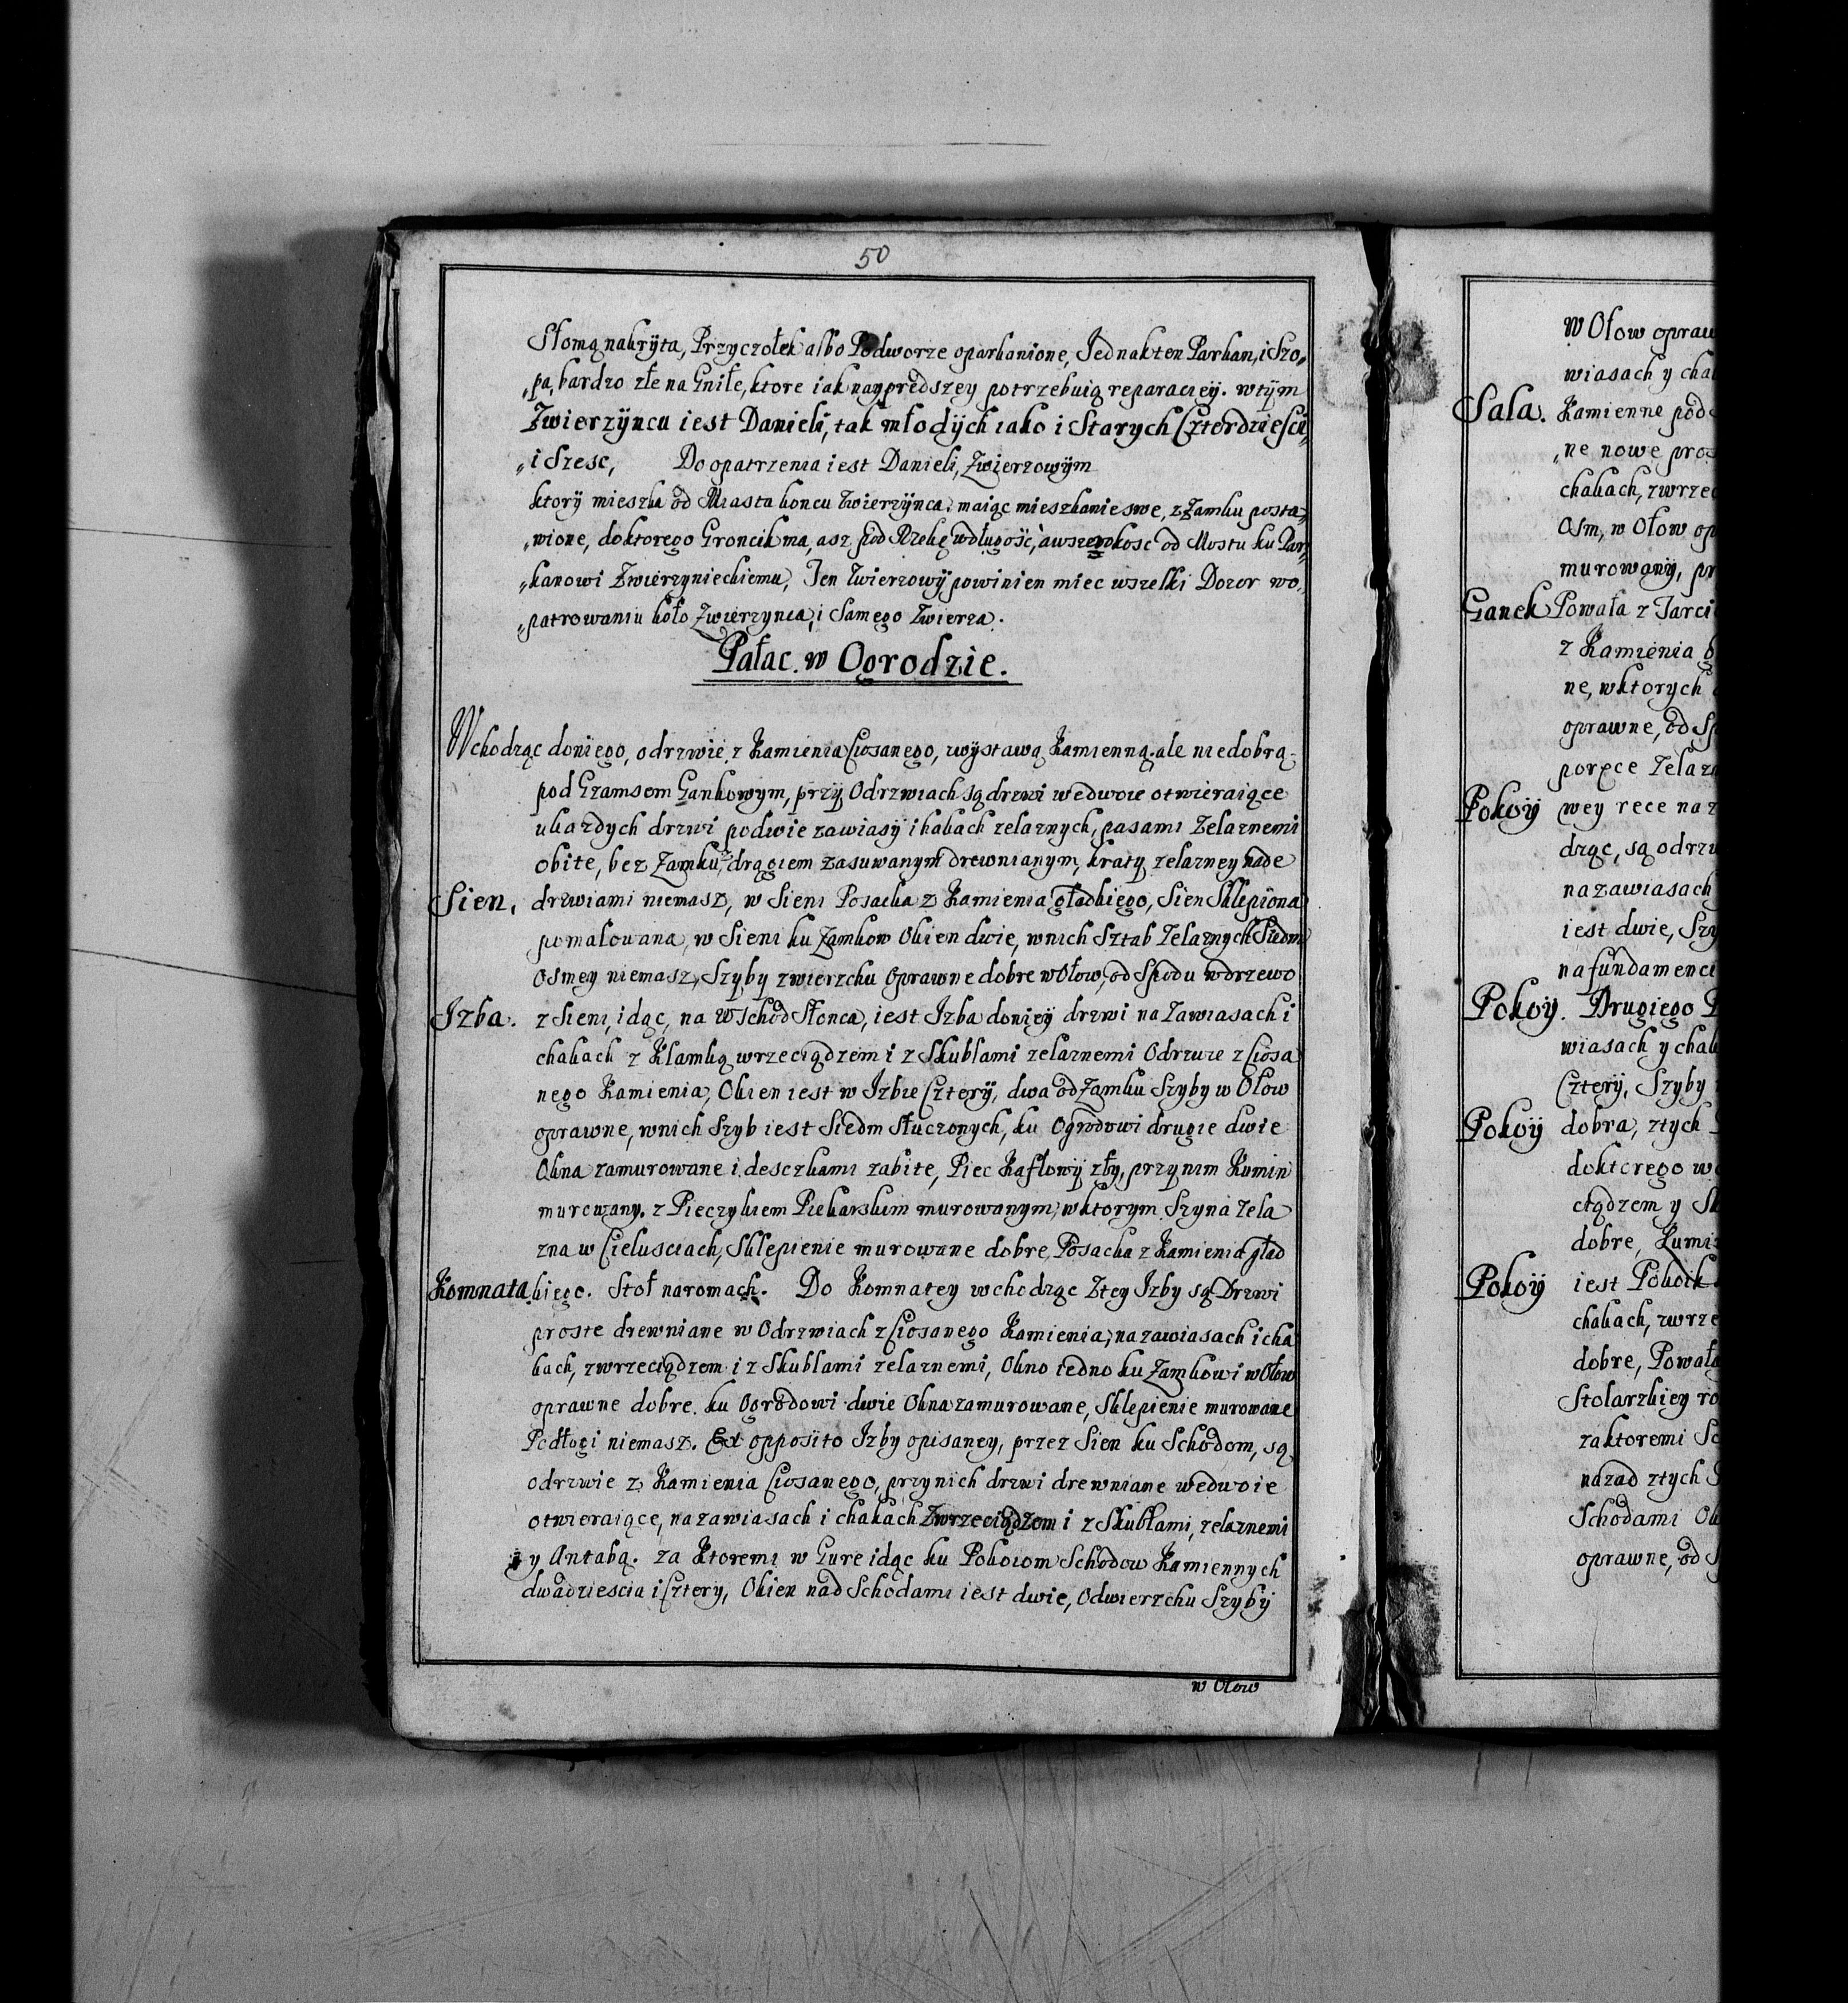 50
Słomą nakryta, Przyczołek albo Podworze oparkanione, Jednak ten Parkan, i Szo„
„pa, bardzo złe na Gniłe, ktore iak nayprędszey potrzebuią reparacyey. w tÿm
Zwierzÿncu iest Danieli, tak młodÿch iako i Starych Czterdziesci„
„i Szesc, Do opatrzenia iest Danieli, Zwierzowÿm
ktorÿ mieszka od Miasta koncu Zwierzÿnca, maiąc mieszkanie swe, z Zamku posta„
„wione, do ktorego Groncik ma, asz pod Rzekę w długość, a w szerokosc od Mostu ku Par„
„kanowi Zwierzynieckiemu, Ten Zwierzowÿ powinien miec wszelki Dozor w o„
„patrowaniu koło Zwierzynca, i Samego Zwierza.
Pałac. w Ogrodzie.
Wchodząc do niego, odrzwie, z Kamienia Ciosanego, z wÿstawą Kamienną, ale niedobrą
pod Gzamsem Gankowym, przÿ Odrzwiach są drzwi we dwoie otwieraiące
u kazdych drzwi po dwie zawiasÿ i hakach zelaznych, pasami Zelaznemi
obite, bez Zamku, z drągiem zasuwanym drewnianym, kratÿ zelazney nade
Sien, drzwiami niemasz, w Sieni Posacka z Kamienia gładkiego, Sien Sklepiona
pomalowana, w Sieni ku Zamkow Okien dwie, w nich Sztab Zelaznych Siedm
Osmey niemasz, Szyby z wierzchu oprawne dobre w Ołow, od Spodu w drzewo
Izba. z Sieni, idąc, na Wschod Słonca, iest Izba do niey drzwi na Zawiasach i
chakach z Klamką wrzeciądzem i z Skublami zelaznemi Odrzwie z Ciosa
nego Kamienia, Okien iest w Izbie Czterÿ, dwa od Zamku Szyby w Ołow
oprawne, w nich Szyb iest Siedm Słuczonych, ku Ogrodowi drugie dwie
Okna zamurowane i desczkami zabite, Piec Kaflowÿ zły, przy nim Kumin
murowany. z Pieczykiem Piekarskim murowanym, w ktorym Szyna zela
zna w Cielusciach, Sklepienie murowane dobre, Posacka z Kamienia gład
Komnata kiego. Stoł na romach. Do Komnatey wchodząc z tey Izby są Drzwi
proste drewniane w Odrzwiach z Ciosanego Kamienia, na zawiasach i cha
kach, z wrzeciądzem i z Skublami zelaznemi, Okno iedno ku Zamkowi w Ołow
oprawne dobre. ku Ogrodowi dwie Okna zamurowane, Sklepienie murowane
Podłogi niemasz. Ex opposito Izby opisaney, przez Sien ku Schodom, są
odrzwie z Kamienia Ciosanego, przy nich drzwi drewniane we dwoie
otwieraiące, na zawiasach i chakach z wrzeciądzem i z Skubłami, zelaznemi
y Antabą. za Ktoremi w Gure idąc ku Pokoiom Schodow Kamiennych
dwadziescia i Cztery, Okien nad Schodami iest dwie, Odwierzchu Szyby
w Ołow
w Ołow opraw
wiasach y chak
Sala. Kamienne pod
„ne nowe pros
chakach, z wrzec
Osm, w Ołow op
murowanÿ, pr
Ganek Powała z Tarci
z Kamienia
ne, w ktorych
oprawne, od Sp
poręce Zelazn
Pokoÿ wey rece na z
drąc, są odrzw
na zawiasach
iest dwie, Szy
na fundamenc
Pokoy. Drugiego P
wiasach y chak
Czterÿ, Szyby
Pokoÿ dobra, złych
do ktorego w
ciądzem y Sk
dobre, Kumi
Pokoÿ iest Pokoik
chakach, z wrze
dobre, Powała
Stolarzkiey ro
za ktoremi Sc
nazad złych
Schodami Ok
oprawne, od S